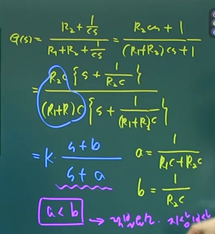 G(s) = \frac{R_2 + \frac{1}{cs}}{R_1 + R_2 + \frac{1}{cs}} = \frac{R_2 cs + 1}{(R_1 + R_2) cs + 1}
= \frac{R_2 c \left\{ s + \frac{1}{R_2 c} \right\}}{(R_1 + R_2) c \left\{ s + \frac{1}{(R_1 + R_2) c} \right\}}
= K \frac{s + b}{s + a}
a = \frac{1}{R_1 c + R_2 c}
b = \frac{1}{R_2 c}
a < b →